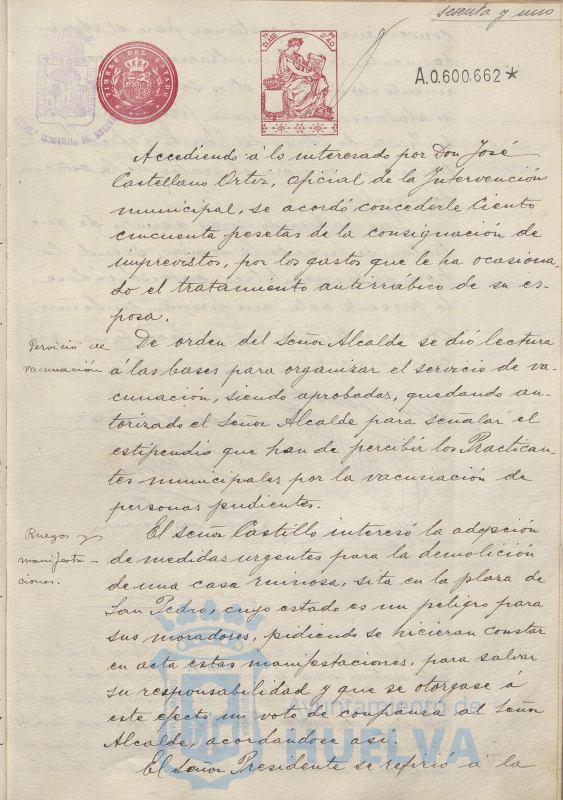 sesenta y uno
TIMBRE DEL ESTADO
CLASE
A.0.600.662*
Accediendo á lo interesado por Don José
Castellano Ortiz, oficial de la Intervención
municipal, se acordó concederle Ciento
cincuenta pesetas de la consignación de
imprevistos, por los gastos que le ha ocasiona-
do el tratamiento antirrábico de su es-
posa.
Servicio de
vacunación
De orden del Señor Alcalde se dió lectura
á las bases para organizar el servicio de va-
cunación, siendo aprobadas, quedando au-
torizado el Señor Alcalde para señalar el
estipendio que han de percibir los Practican-
tes municipales por la vacunación de
personas pudientes.
Ruegos y
manifesta-
ciones.
El Señor Castillo interesó la adopción
de medidas urgentes para la demolición
de una casa ruinosa, sita en la plaza de
San Pedro, cuyo estado es un peligro para
sus moradores, pidiendo se hicieran constar
en acta estas manifestaciones, para salvar
su responsabilidad y que se otorgase á
este efecto un voto de confianza al Señor
Alcalde, acordandose asi.
El Señor Presidente se refirió á la
Ayuntamiento de
HUELVA